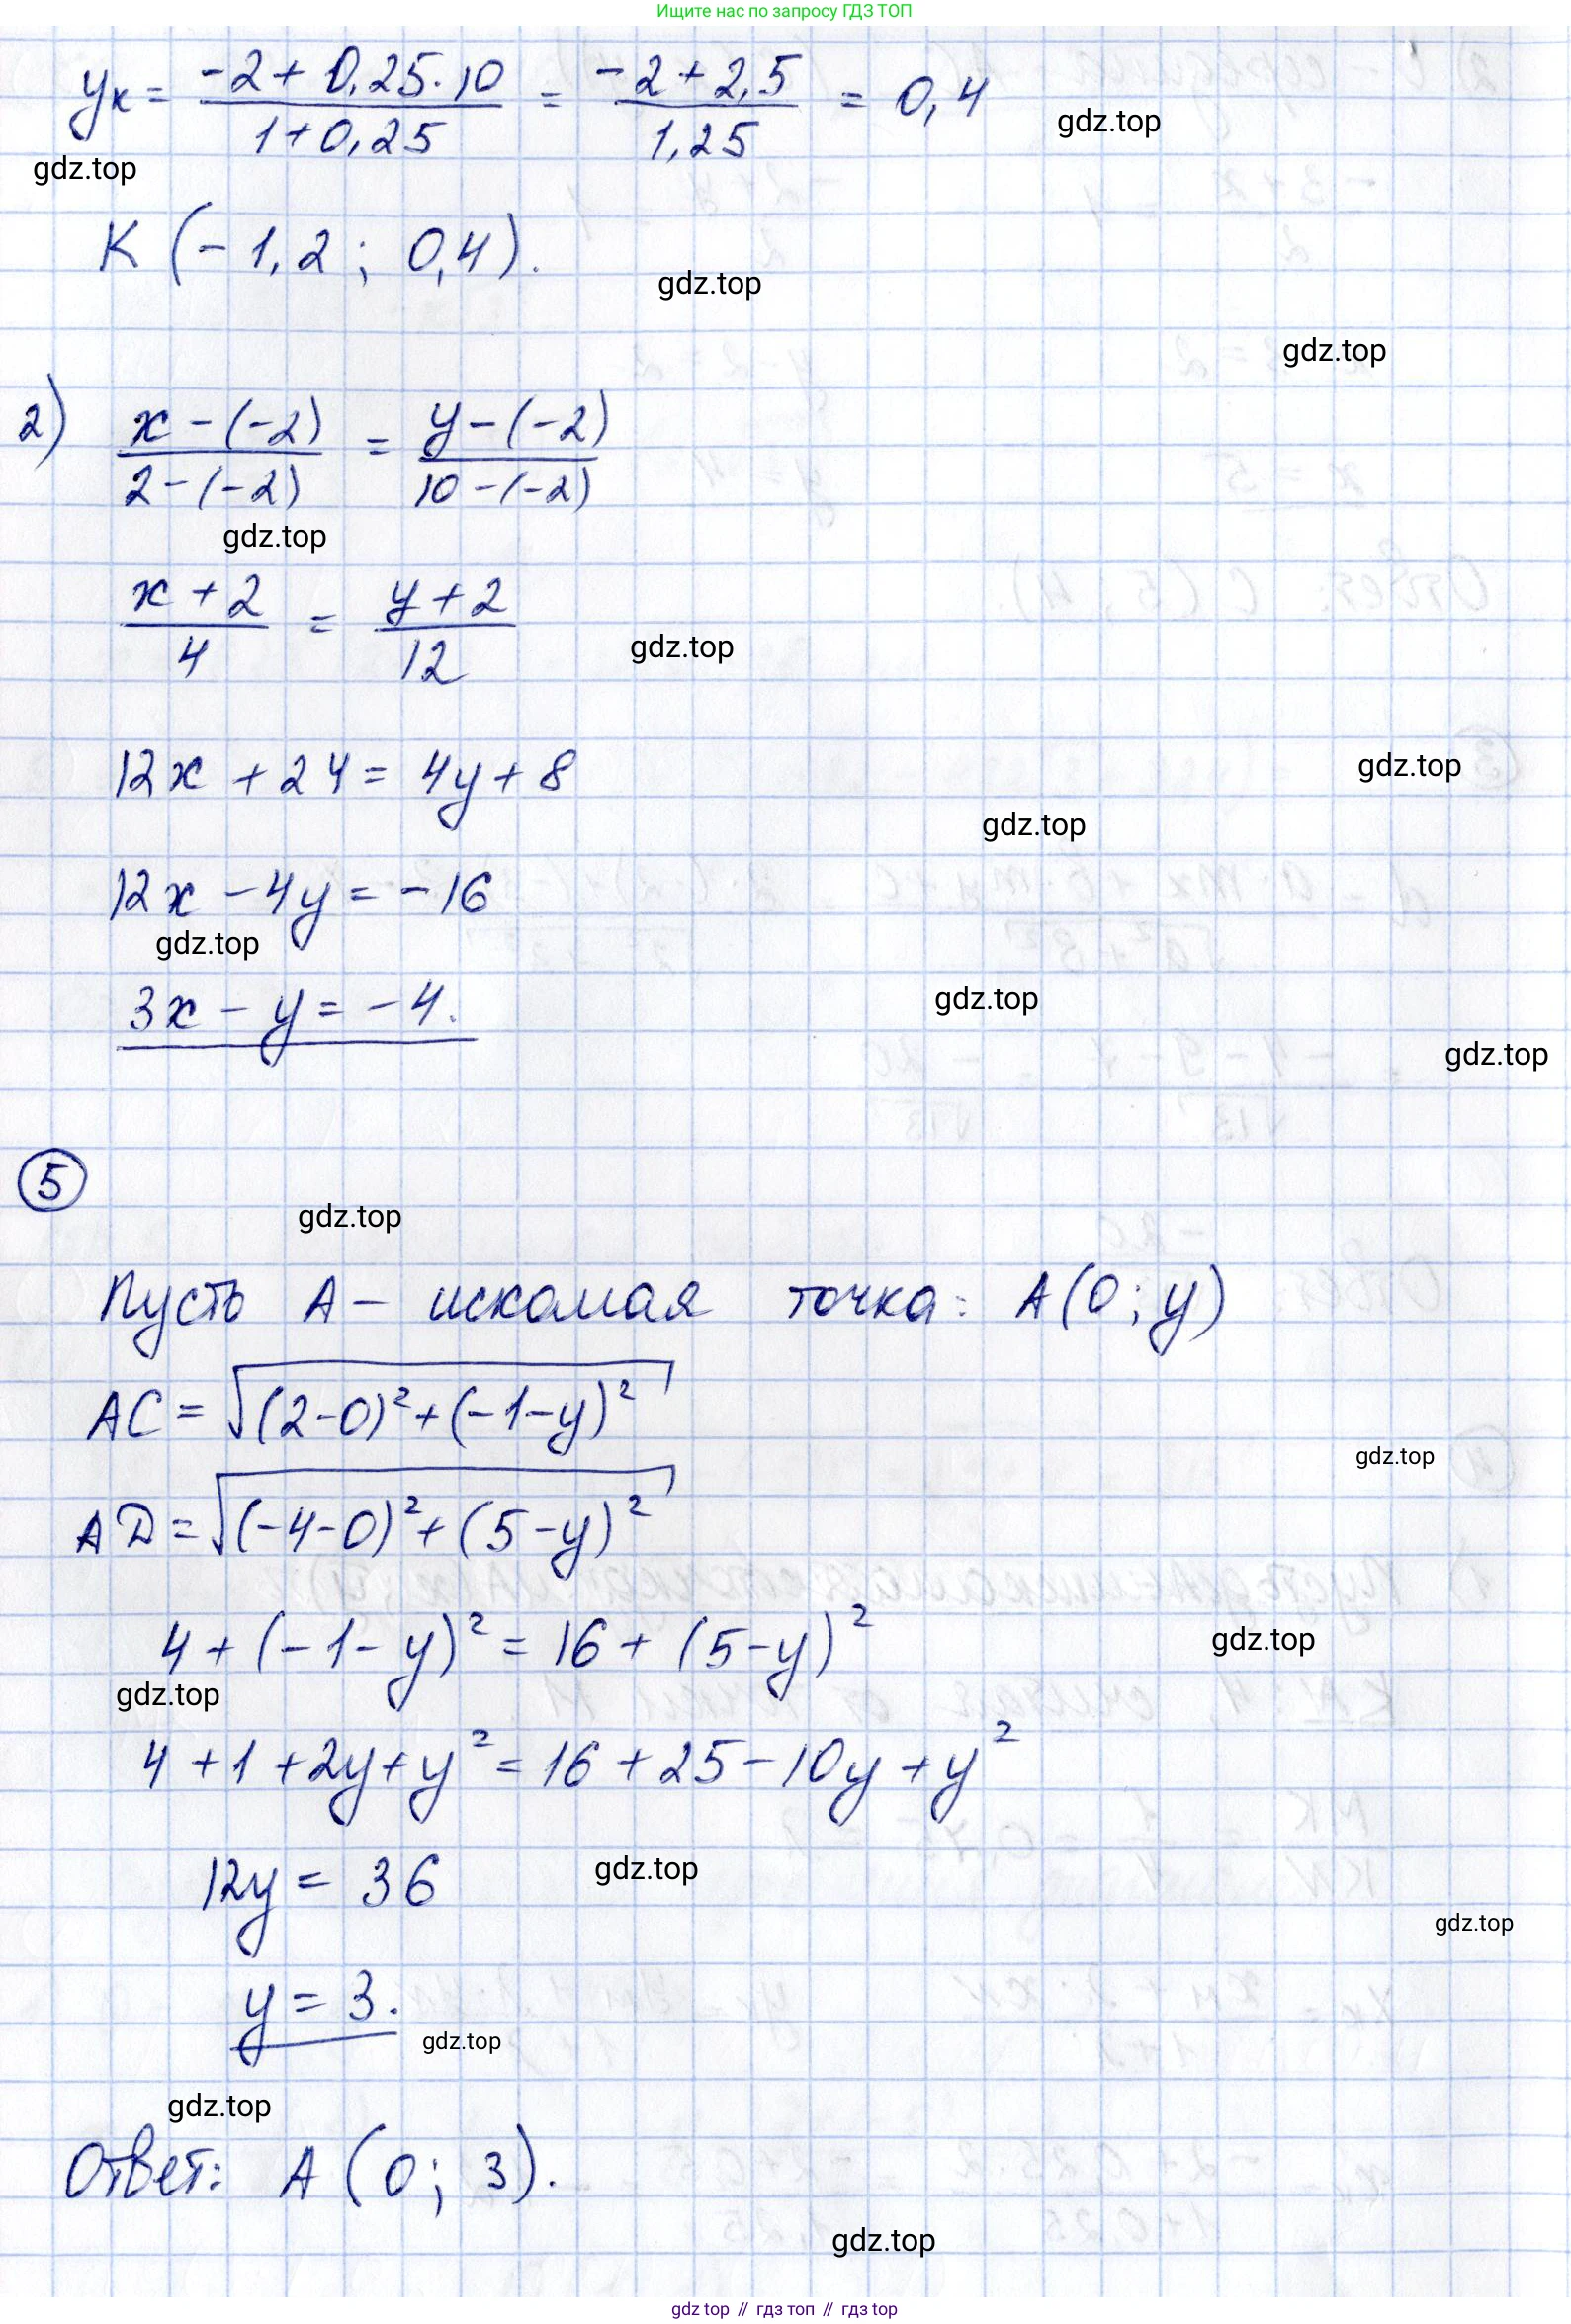 Ищите нас по запросу ГДЗ ТОП
yк = (-2 + 0,25·10)/(1+0,25) = (-2+2,5)/1,25 = 0,4
gdz.top
gdz.top
K (-1,2 ; 0,4).
gdz.top
gdz.top
2) (x-(-2))/(2-(-2)) = (y-(-2))/(10-(-2))
gdz.top
(x+2)/4 = (y+2)/12
gdz.top
12x + 24 = 4y + 8
gdz.top
gdz.top
12x - 4y = -16
gdz.top
3x - y = -4.
gdz.top
gdz.top
5
gdz.top
Пусть A — искомая точка: A(0; y)
AC = √((2-0)²+(-1-y)²)
gdz.top
AD = √((-4-0)²+(5-y)²)
4 + (-1-y)² = 16 + (5-y)²
gdz.top
gdz.top
4 + 1 + 2y + y² = 16 + 25 - 10y + y²
12y = 36
gdz.top
gdz.top
y = 3.
gdz.top
gdz.top
Ответ: A (0; 3).
gdz.top
gdz top // гдз топ // гдз top